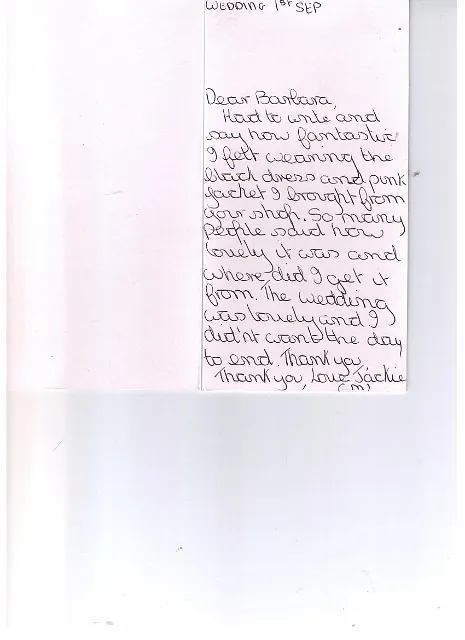 WEDDING 1st SEP
Dear Barbara,
Had to write and
say how fantastic
I felt wearing the
black dress and pink
jacket I brought from
your shop. So many
people said how
lovely it was and
where did I get it
from. The wedding
was lovely and I
did'nt want the day
to end. Thank you
Thank you, Love Jackie
(M)